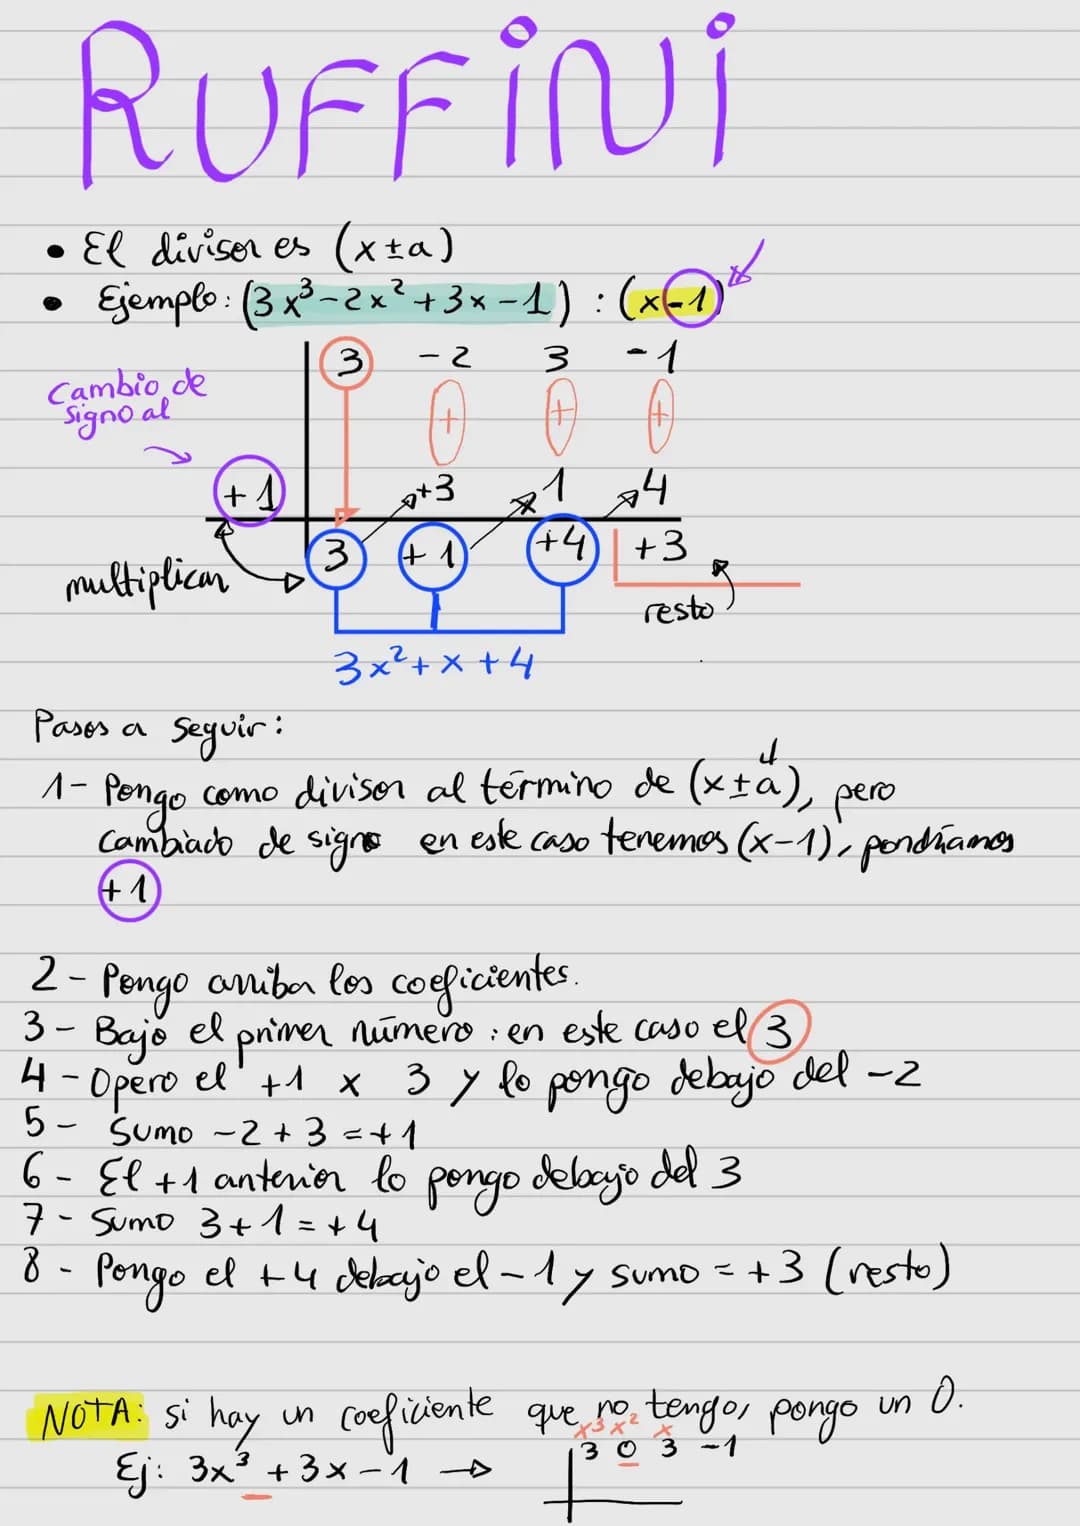 RUFFiNi
• El divisor es (x±a)
• Ejemplo: (3x³-2x²+3x-1) : (x-1)
3 -2 3 -1
Cambio de
signo al
+ + +
+1 +3 1 4
3 +1 +4 +3
multiplicar
resto
3x²+x+4
Pasos a seguir:
1- Pongo como divisor al término de (x±a), pero
cambiado de signo en este caso tenemos (x-1), pondríamos
+1
2- Pongo arriba los coeficientes.
3- Bajo el primer número: en este caso el 3
4- Opero el +1 x 3 y lo pongo debajo del -2
5- Sumo -2+3=+1
6- El +1 anterior lo pongo debajo del 3
7- Sumo 3+1=+4
8- Pongo el +4 debajo el -1 y sumo = +3 (resto)
NOTA: si hay un coeficiente que no tengo, pongo un 0.
x³ x² x
Ej: 3x³ +3x-1 → 3 0 3 -1